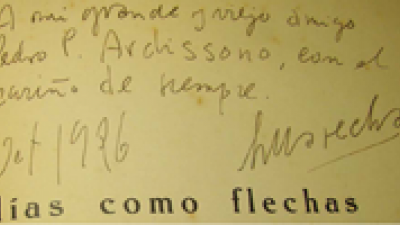 A mi grande y viejo amigo
Pedro P. Ardissono, con el
cariño de siempre.
Oct 1926
días como flechas